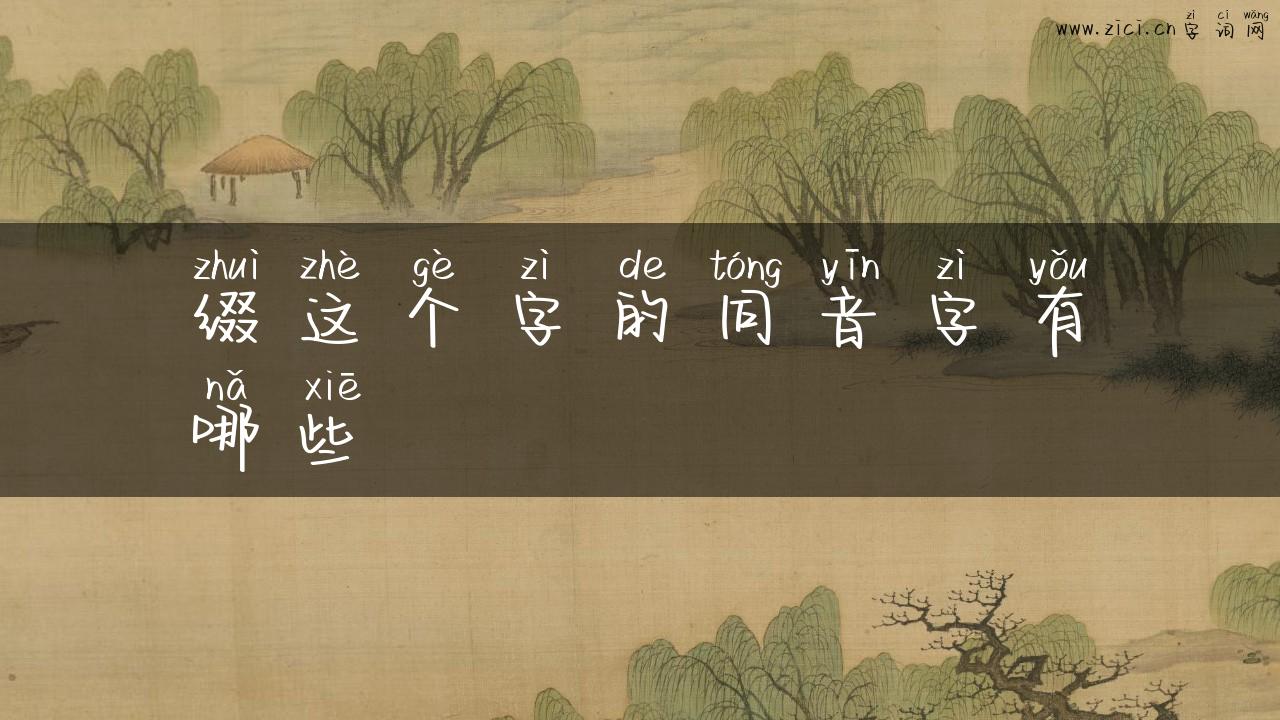 zì cí wǎng
www.zici.cn 字 词 网
zhuì zhè gè zì de tóng yīn zì yǒu
缀 这 个 字 的 同 音 字 有
nǎ xiē
哪 些